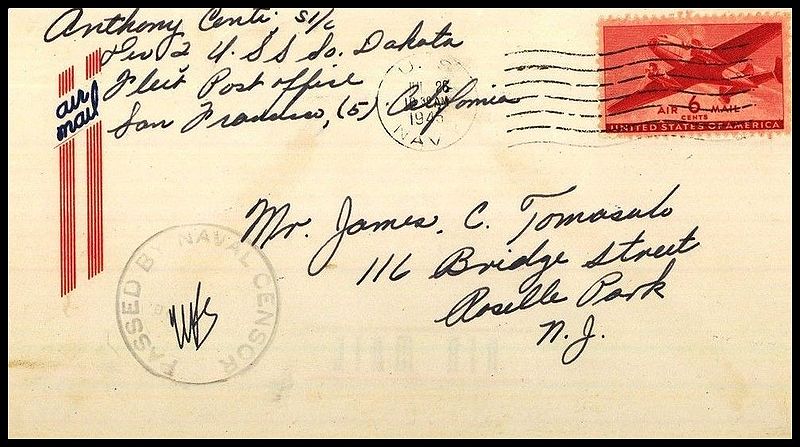 Anthony Centi S1/c
Div 2 U.S.S So. Dakota
Fleet Post office
San Francisco, (5) California
air
mail
U. S.
26
1945
NAVY
AIR 6 MAIL
CENTS
UNITED STATES OF AMERICA
Mr. James. C. Tomasulo
116 Bridge Street
Roselle Park
N.J.
PASSED BY NAVAL CENSOR
AIR MAIL